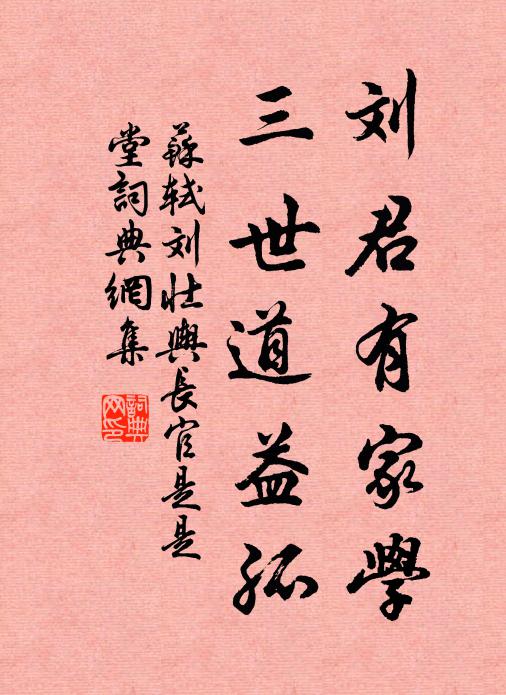 刘君有家學
三世道益孤
蘇轼刘壮輿長官是是
堂詞典網集
詞典
网印